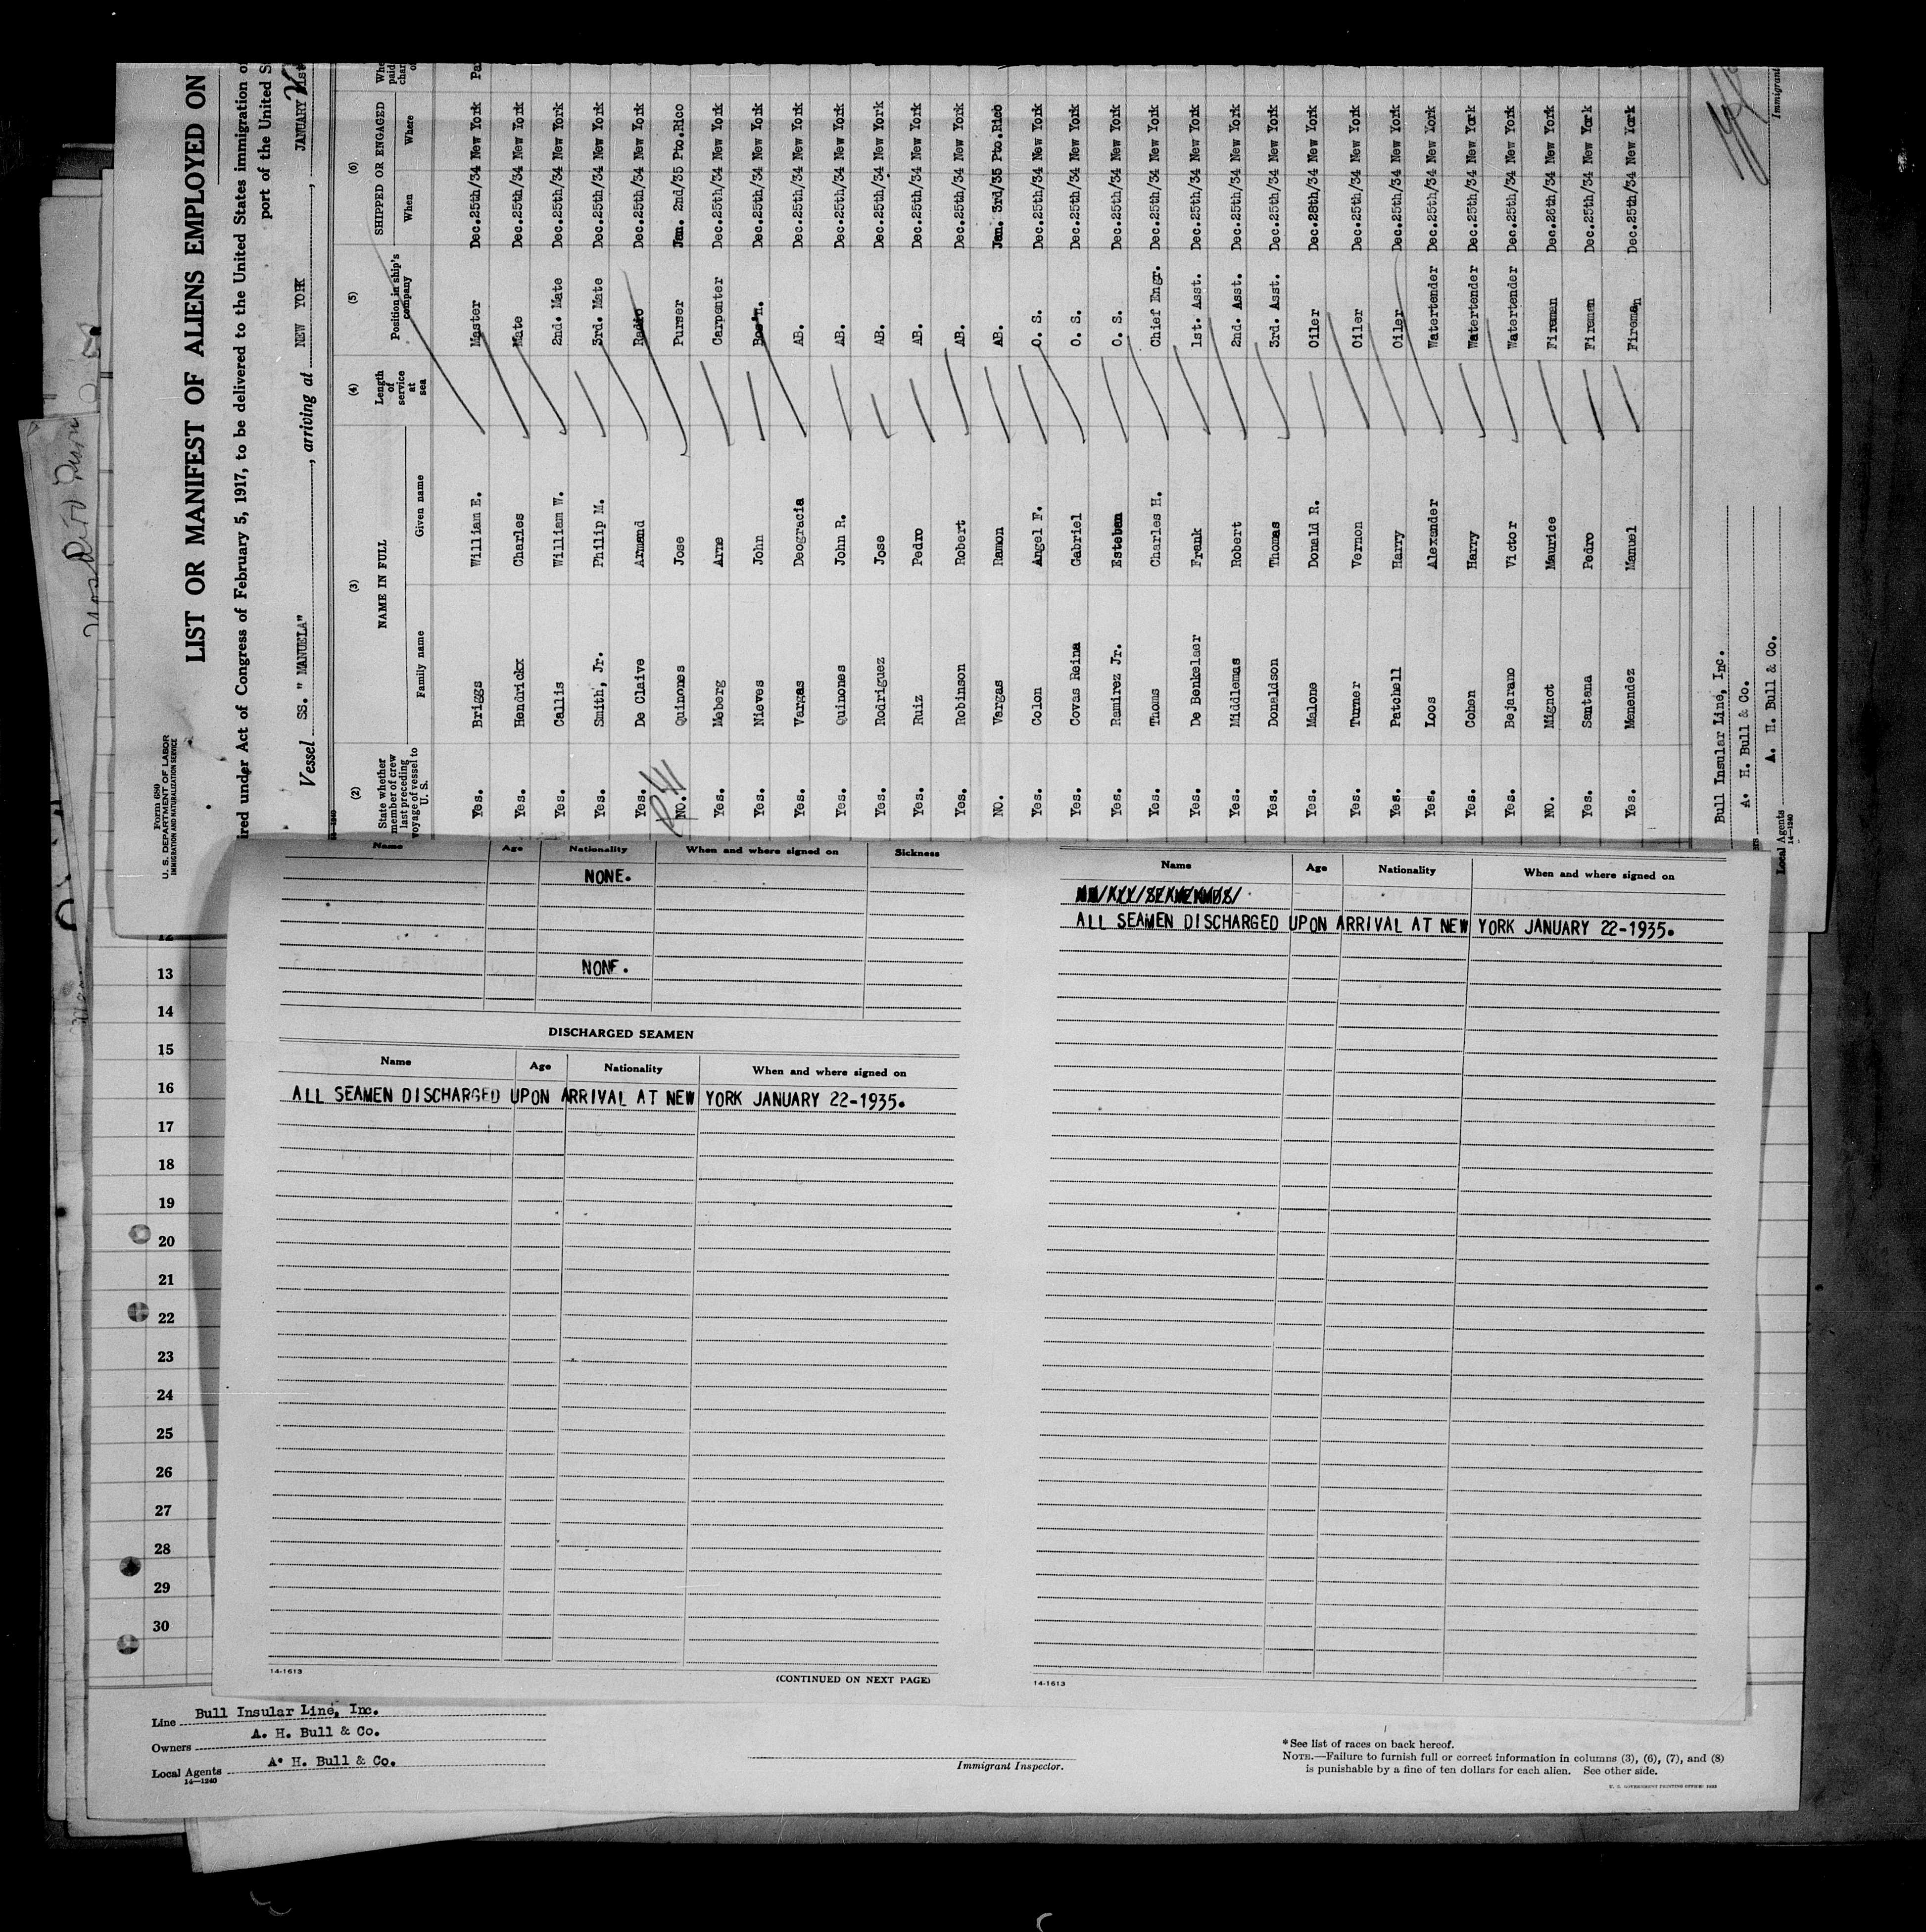 Form 680
U. S. DEPARTMENT OF LABOR
IMMIGRATION AND NATURALIZATION SERVICE
LIST OR MANIFEST OF ALIENS EMPLOYED ON
ired under Act of Congress of February 5, 1917, to be delivered to the United States immigration o
port of the United S
Vessel SS. " MANUELA" , arriving at NEW YORK , JANUARY
(2) (3) (4) (5) (6)
State whether member of crew last preceding voyage of vessel to U. S. NAME IN FULL Length of service at sea Position in ship's company SHIPPED OR ENGAGED
Family name Given name When Where
Yes. Briggs William E. Master Dec.25th/34 New York
Yes. Hendrickx Charles Mate Dec.25th/34 New York
Yes. Callis William W. 2nd. Mate Dec.25th/34 New York
Yes. Smith, Jr. Philip M. 3rd. Mate Dec.25th/34 New York
Yes. De Claive Armand Radio Dec.25th/34 New York
NO. Quinones Jose Purser Jan. 2nd/35 Pto.Rico
Yes. Meberg Arne Carpenter Dec.25th/34 New York
Yes. Nieves John Bos'n. Dec.25th/34 New York
Yes. Vargas Deogracia AB. Dec.25th/34 New York
Yes. Quinones John R. AB. Dec.25th/34 New York
Yes. Rodriguez Jose AB. Dec.25th/34 New York
Yes. Ruiz Pedro AB. Dec.25th/34 New York
Yes. Robinson Robert AB. Dec.25th/34 New York
NO. Vargas Ramon AB. Jan. 3rd/35 Pto.Rico
Yes. Colon Angel F. O. S. Dec.25th/34 New York
Yes. Covas Reina Gabriel O. S. Dec.25th/34 New York
Yes. Ramirez Jr. Esteban O. S. Dec.25th/34 New York
Yes. Thoms Charles H. Chief Engr. Dec.25th/34 New York
Yes. De Benkelaer Frank 1st. Asst. Dec.25th/34 New York
Yes. Middlemas Robert 2nd. Asst. Dec.25th/34 New York
Yes. Donaldson Thomas 3rd. Asst. Dec.25th/34 New York
Yes. Malone Donald R. Oiler Dec.28th/34 New York
Yes. Turner Vernon Oiler Dec.25th/34 New York
Yes. Patchell Harry Oiler Dec.25th/34 New York
Yes. Loos Alexander Watertender Dec.25th/34 New York
Yes. Cohen Harry Watertender Dec.25th/34 New York
Yes. Bejarano Victor Watertender Dec.25th/34 New York
NO. Mignot Maurice Fireman Dec.26th/34 New York
Yes. Santana Pedro Fireman Dec.25th/34 New York
Yes. Menendez Manuel Fireman Dec.25th/34 New York
Bull Insular Line, Inc.
A. H. Bull & Co.
Local Agents A. H. Bull & Co.
14—1240
Immigrant
Name Age Nationality When and where signed on Sickness
NONE.
NONE.
DISCHARGED SEAMEN
Name Age Nationality When and where signed on
ALL SEAMEN DISCHARGED UPON ARRIVAL AT NEW YORK JANUARY 22-1935.
14-1613
(CONTINUED ON NEXT PAGE)
Name Age Nationality When and where signed on
ALL SEAMEN DISCHARGED UPON ARRIVAL AT NEW YORK JANUARY 22-1935.
14-1613
12
13
14
15
16
17
18
19
20
21
22
23
24
25
26
27
28
29
30
Line Bull Insular Line, Inc.
Owners A. H. Bull & Co.
Local Agents A. H. Bull & Co.
14—1240
Immigrant Inspector.
*See list of races on back hereof.
NOTE.—Failure to furnish full or correct information in columns (3), (6), (7), and (8)
is punishable by a fine of ten dollars for each alien. See other side.
U. S. GOVERNMENT PRINTING OFFICE: 1933